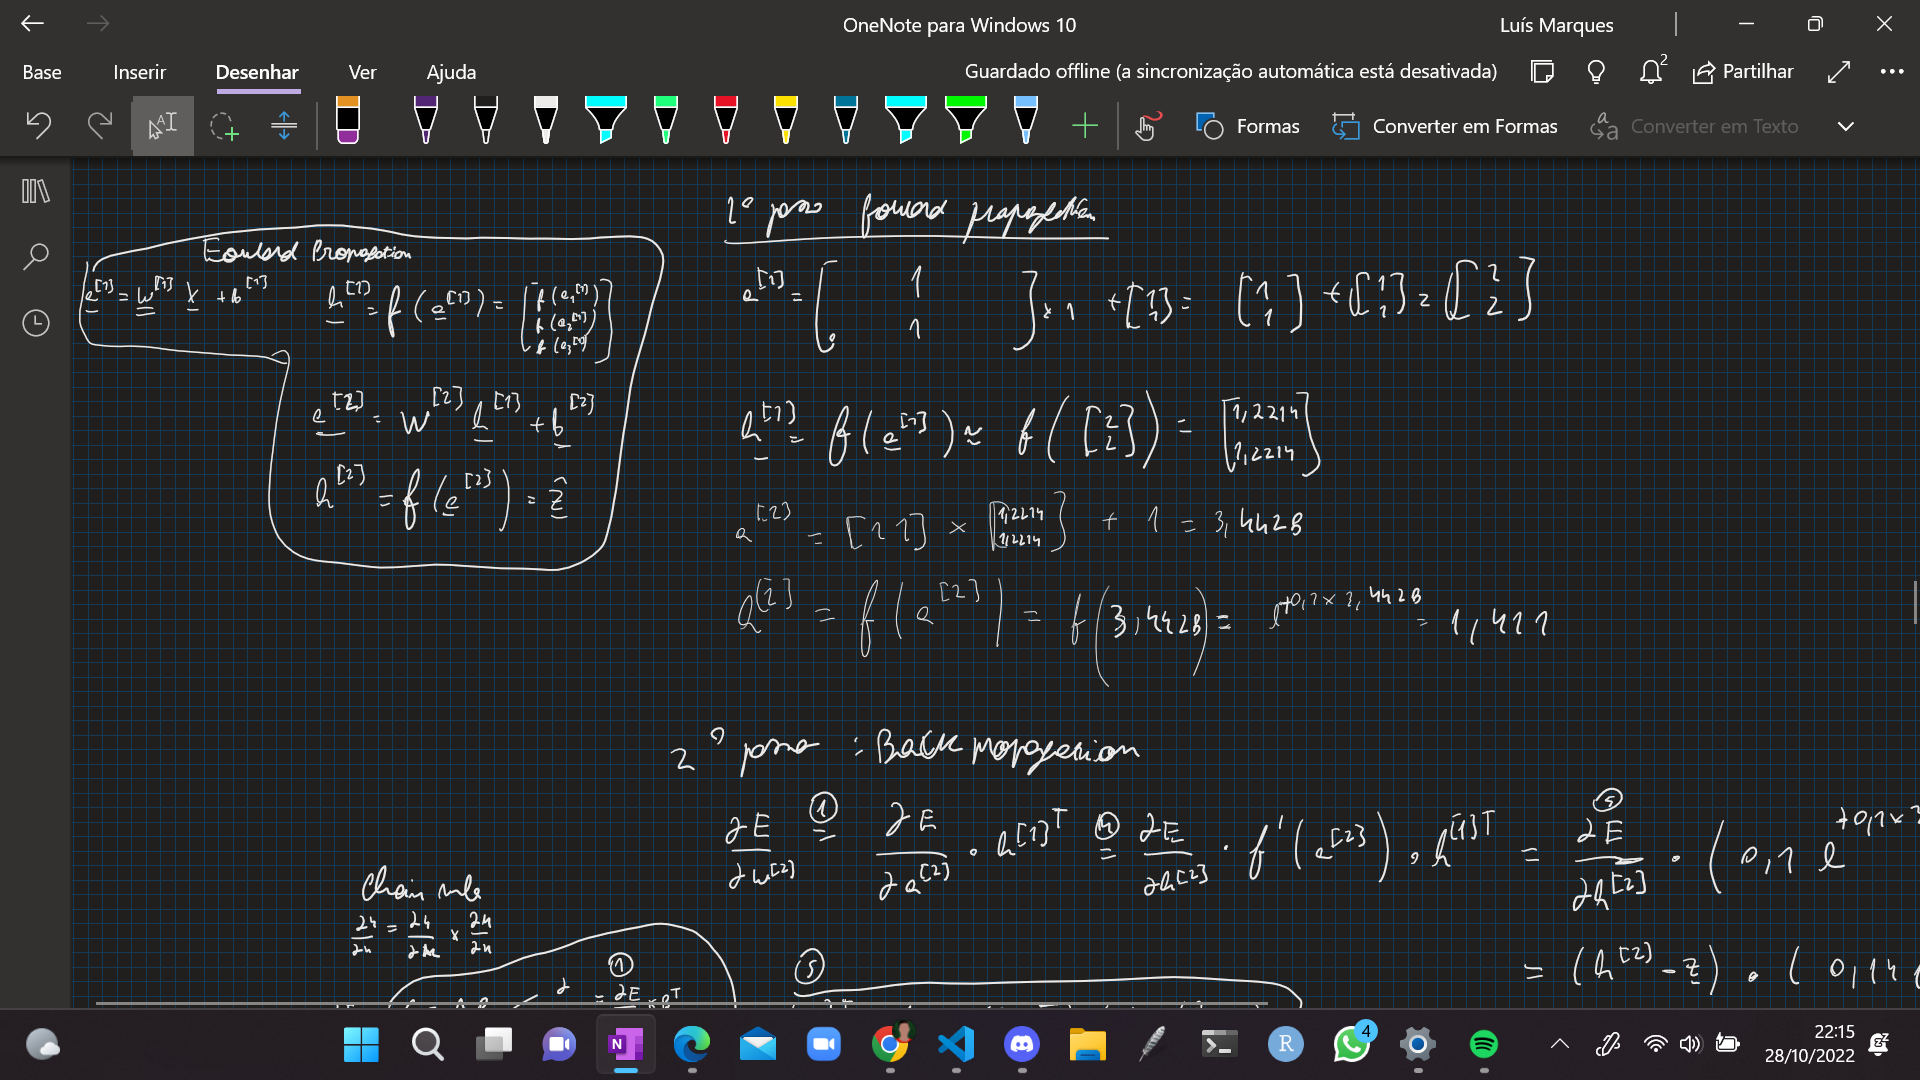 OneNote para Windows 10
Luís Marques
Base Inserir Desenhar Ver Ajuda
Guardado offline (a sincronização automática está desativada)
2
Partilhar
Formas
Converter em Formas
Converter em Texto
1º passo forward propagation
Forward Propagation
a^[1] = w^[1] x + b^[1] h^[1] = f(a^[1]) = [f(a₁^[1]) f(a₂^[1]) f(a₃^[1])]
a^[2] = w^[2] h^[1] + b^[2]
h^[2] = f(a^[2]) = ẑ
a^[1] = [1 1] × 1 + [1 1] = [1 1] + [1 1] = [2 2]
h^[1] = f(a^[1]) ≈ f([2 2]) = [1,2214 1,2214]
a^[2] = [1 1] × [1,2214 1,2214] + 1 = 3,4428
h^[2] = f(a^[2]) = f(3,4428) = e^+0,1×3,4428 = 1,411
2º passo : Back propagation
∂E/∂w^[2] =① ∂E/∂a^[2] · h^[1]T =④ ∂E/∂h^[2] · f'(a^[2]) · h^[1]T = ⑤ ∂E/∂h^[2] · (0,1 e^+0,1×3
= (h^[2] - z) · (0,141
Chain rule
①
⑤
4
22:15
28/10/2022